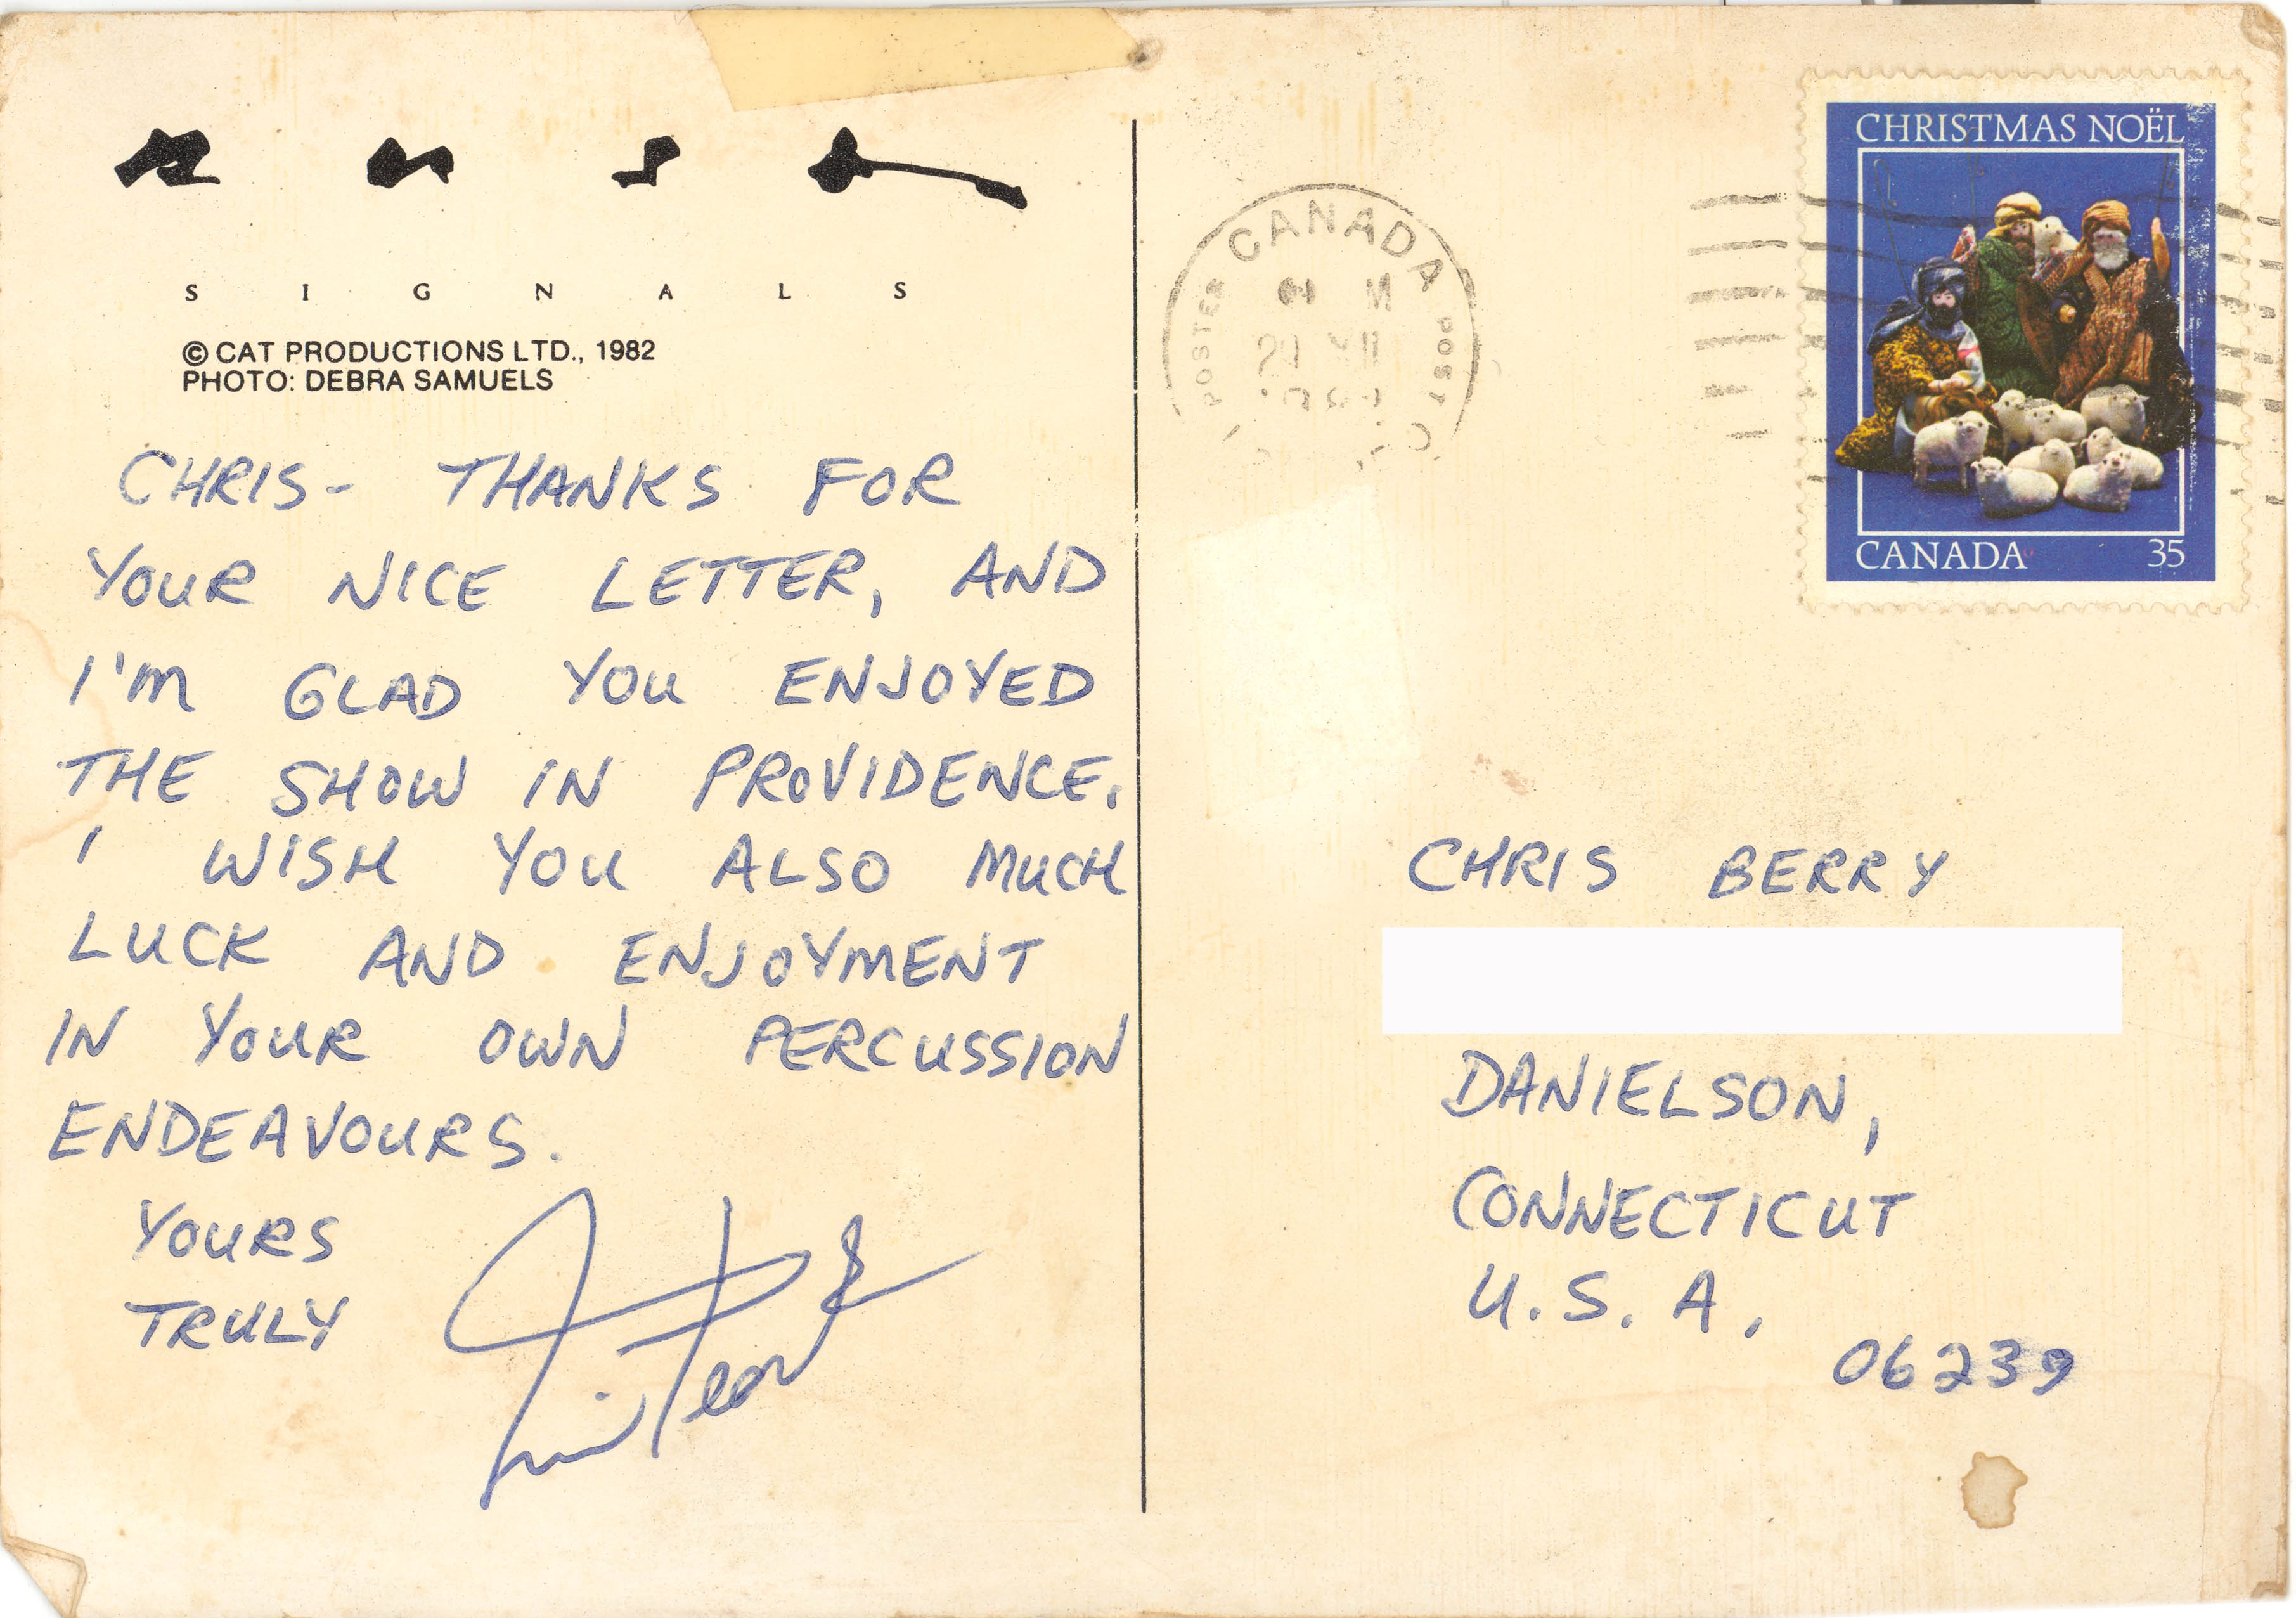 rush
S I G N A L S
© CAT PRODUCTIONS LTD., 1982
PHOTO: DEBRA SAMUELS
CHRIS- THANKS FOR
YOUR NICE LETTER, AND
I'M GLAD YOU ENJOYED
THE SHOW IN PROVIDENCE.
I WISH YOU ALSO MUCH
LUCK AND ENJOYMENT
IN YOUR OWN PERCUSSION
ENDEAVOURS.
YOURS
TRULY
CANADA
CHRISTMAS NOËL
CANADA 35
CHRIS BERRY
DANIELSON,
CONNECTICUT
U.S.A.
06239